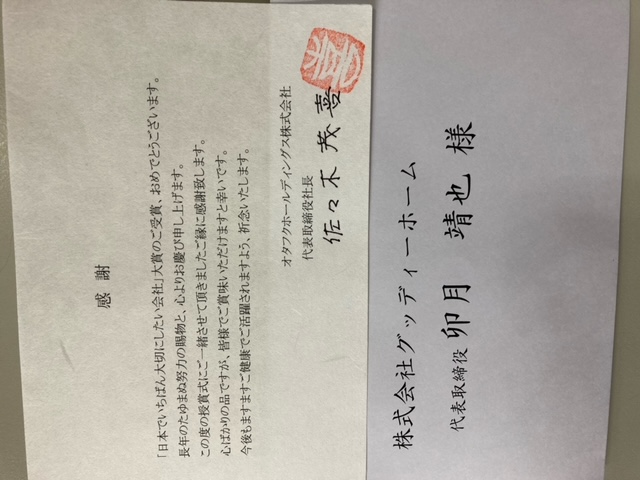 感謝
「日本でいちばん大切にしたい会社」大賞のご受賞、おめでとうございます。
長年のたゆまぬ努力の賜物と、心よりお慶び申し上げます。
この度の授賞式にご一緒させて頂きましたご縁に感謝致します。
心ばかりの品ですが、皆様でご賞味いただけますと幸いです。
今後もますますご健康でご活躍されますよう、祈念いたします。
オタフクホールディングス株式会社
代表取締役社長
佐々木茂喜
株式会社グッディーホーム
代表取締役 卯月 靖也 様